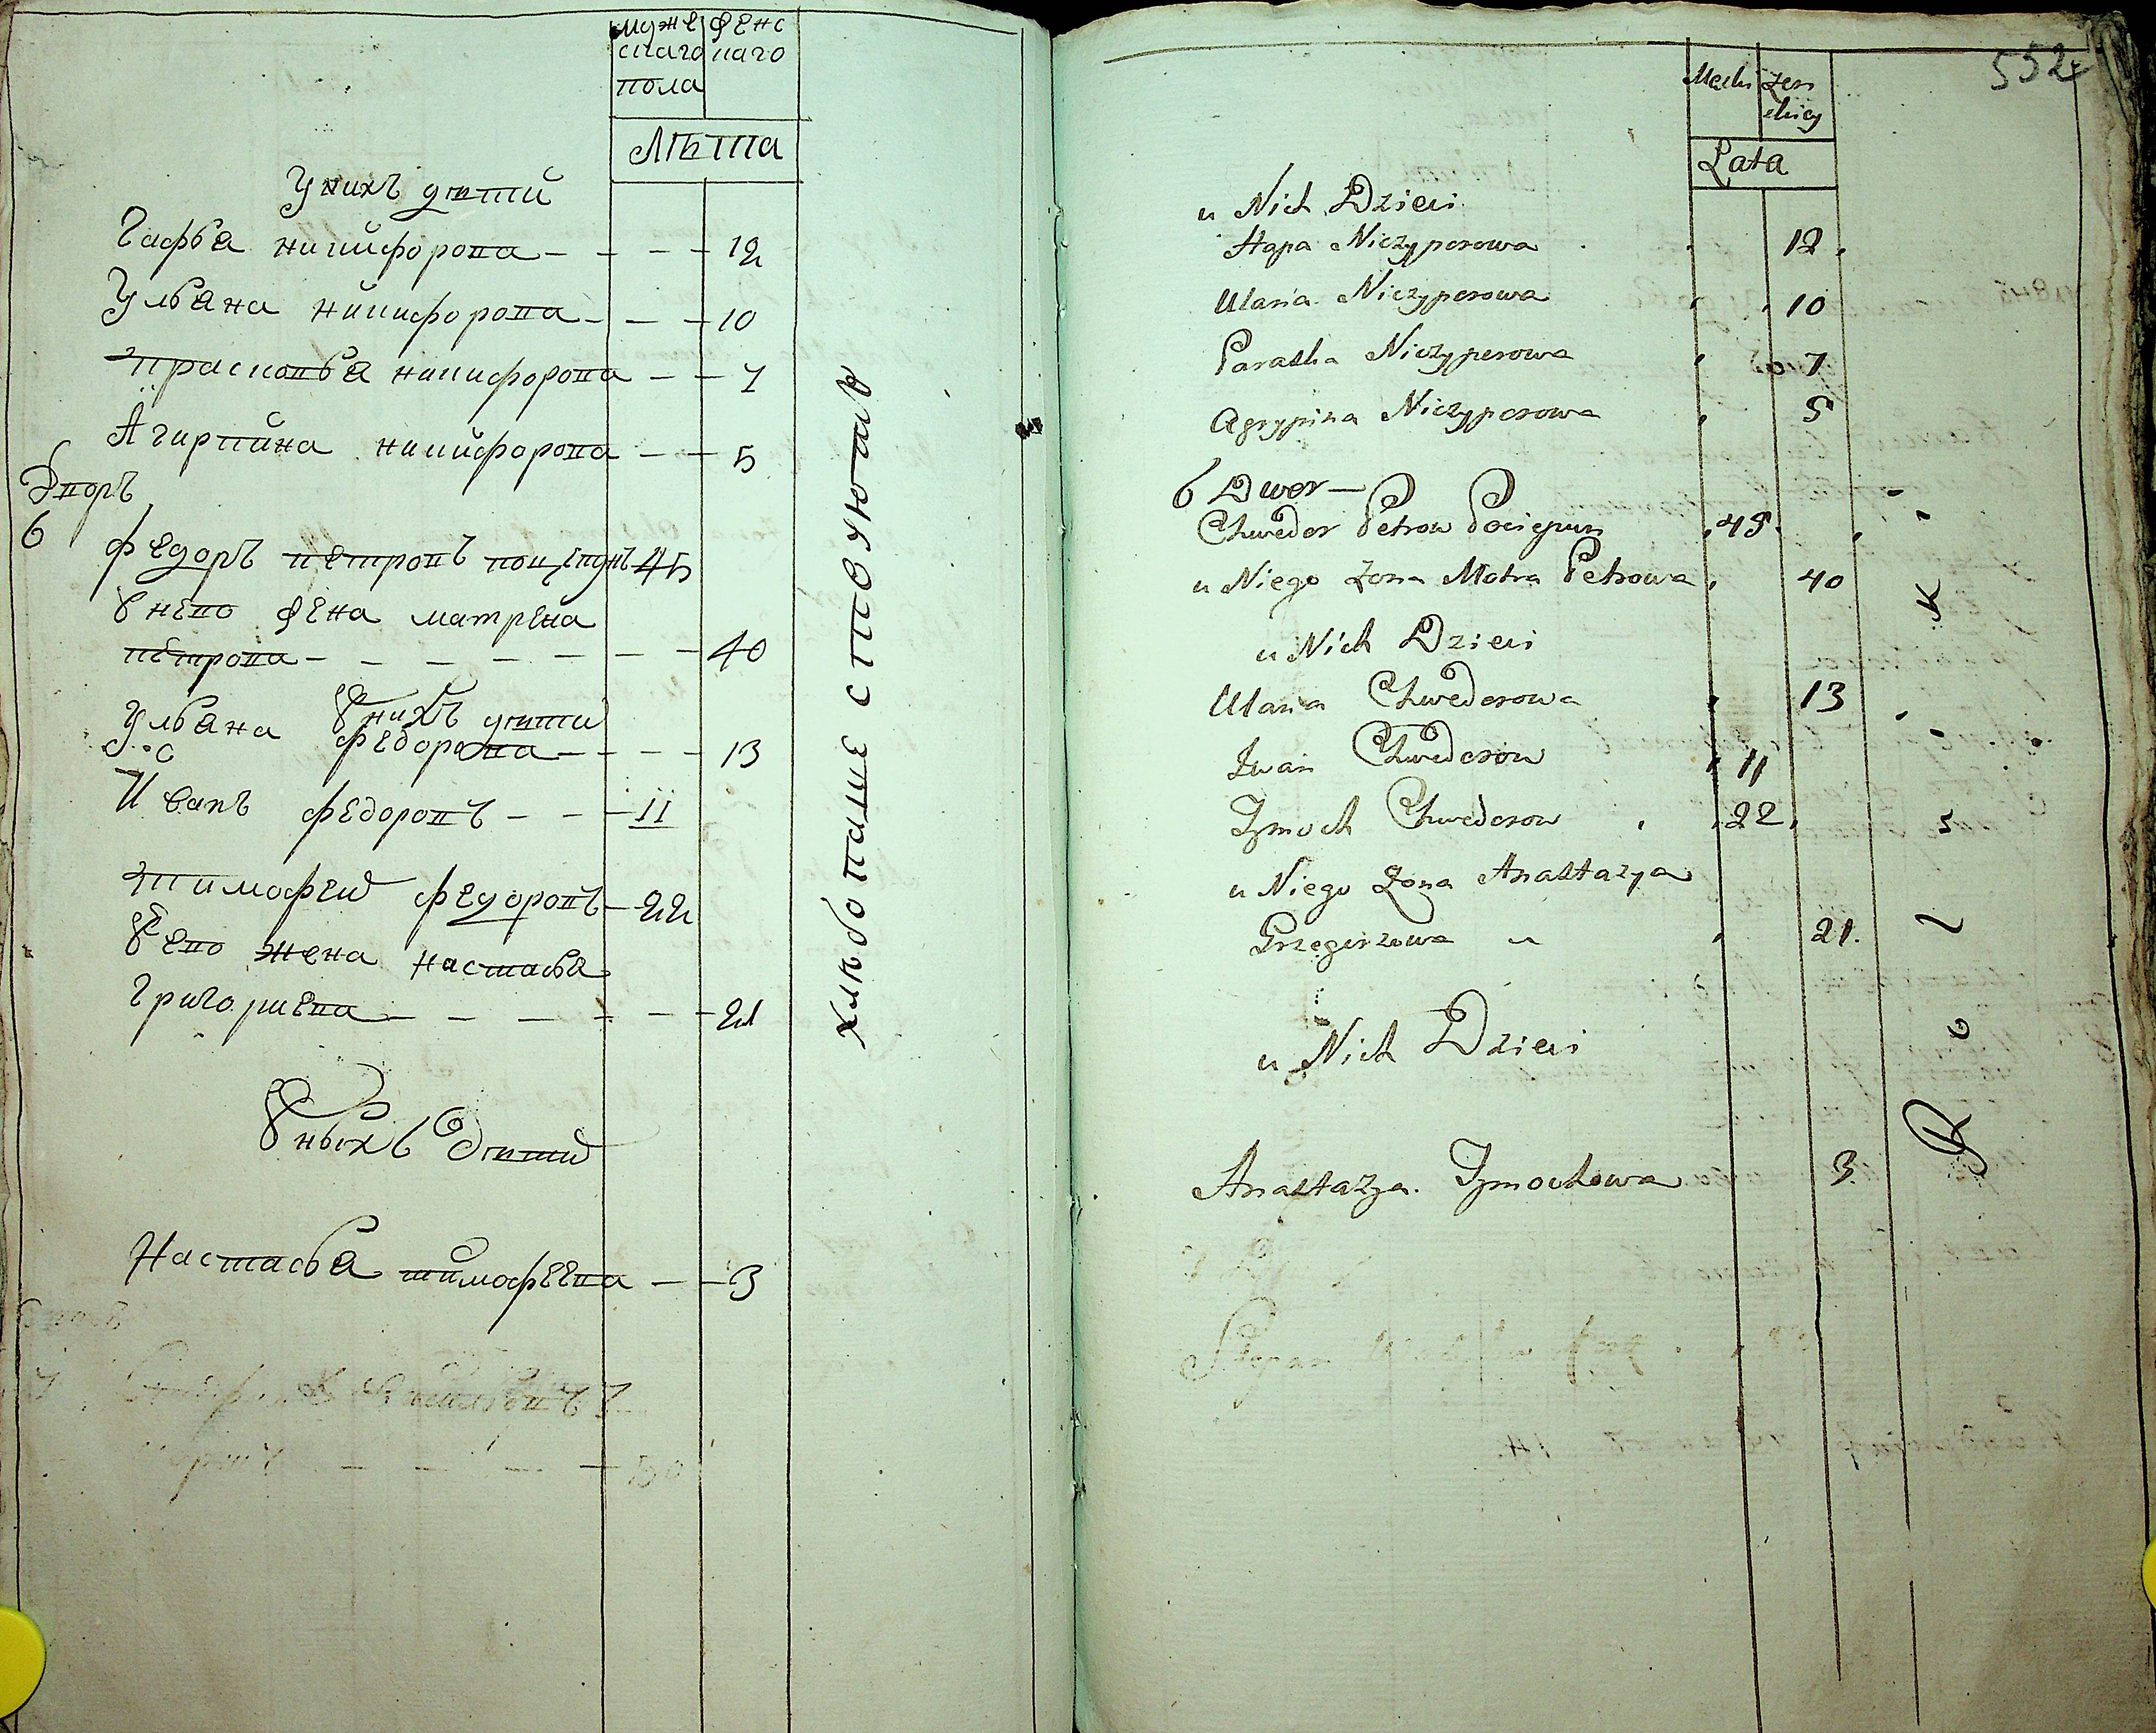 муже женс
скаго каго
пола
Лѣта
У нихъ дѣти
Гафья никифорова 12
Ульяна никифорова 10
Прасковья никифорова 7
Агирпина никифорова 5
Дворъ
6 Федоръ петровъ поцепунъ 45
У нево жена матрена
петрова 40
У нихъ дѣти
Ульяна федорова 13
Иванъ федоровъ 11
Тимофей федоровъ 22
У ево жена настасья
григориева 21
У ныхъ дѣти
Настасья тимофеева 3
хлѣбопашествуютъ
552
Męski Żen
skiey
Lata
u Nich Dzieci
Hapa Niczyporowa 12
Ulana Niczyporowa 10
Paraska Niczyporowa 7
Agrypina Niczyporowa 5
6 Dwor
Chwedor Petrow Pociepun 45
u Niego Żona Motra Petrowa 40
u Nich Dzieci
Ulana Chwedorowa 13
Iwan Chwedorow 11
Tymoch Chwedorow 22
u Niego Żona Anastazya
Grzegorzowa 21
u Nich Dzieci
Anastazya Tymochowa 3